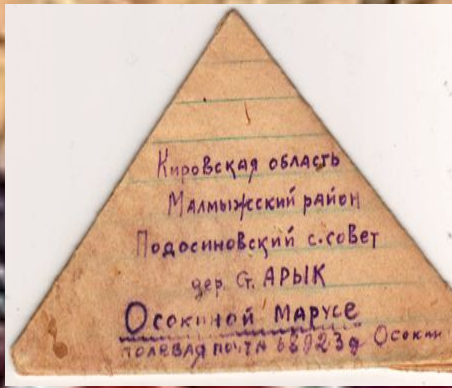 Кировская область
Малмыжский район
Подосиновский с.совет
дер. Ст. АРЫК
Осокиной Марусе
полевая почта Осокин